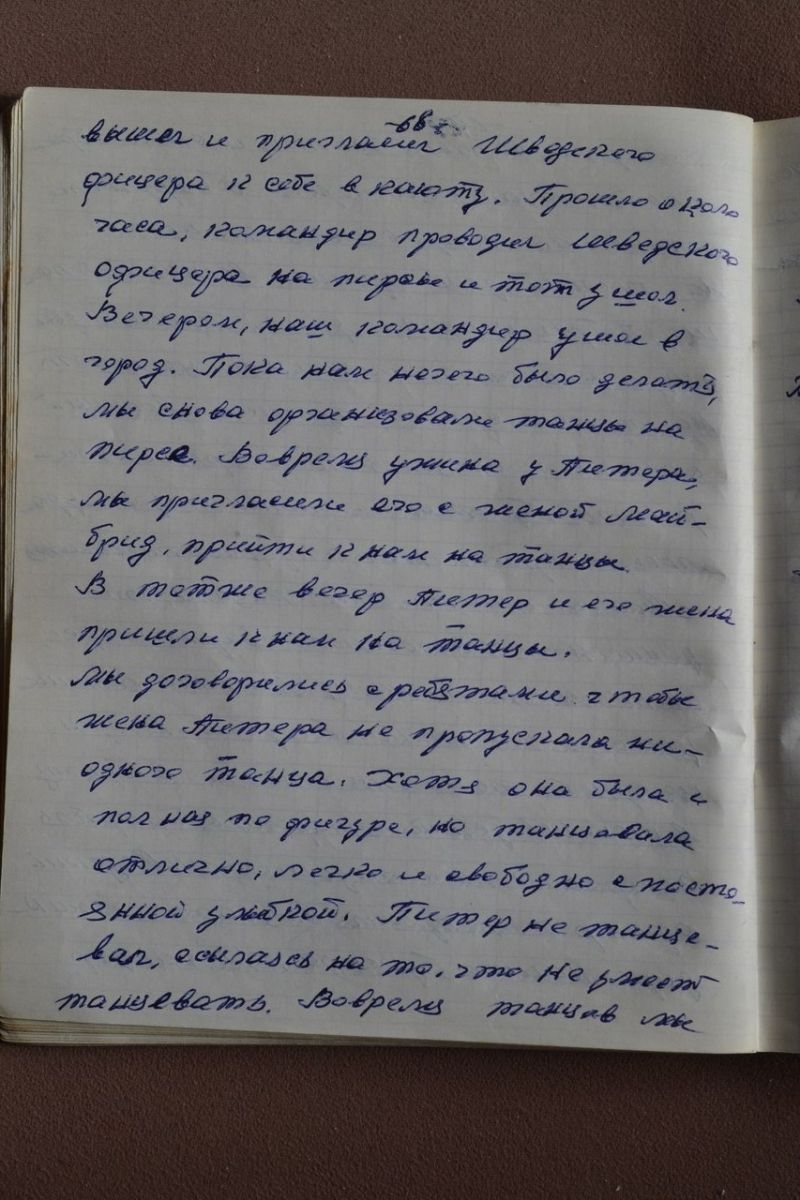 вышел и пригласил Шведского
фицера к себе в каюту. Прошло около
часа, командир проводил шведского
офицера на пирсы и тот ушол.
Вечером, наш командир ушол в
город. Пока нам нечего было делать,
мы снова организовали танцы на
пирсе. Вовремя ужина у Питера,
мы пригласили его с женой Май-
брид, прийти к нам на танцы.
В тотже вечер Питер и его жена
пришли к нам на танцы.
Мы договорились с ребятами чтобы
жена Питера не пропускала ни-
одного танца. Хотя она была и
полная по фигуре, но танцевала
отлично, легко и свободно с посто-
янной улыбкой. Питер не танце-
вал, ссылаясь на то, что не умеет
танцевать. Вовремя танцев мы